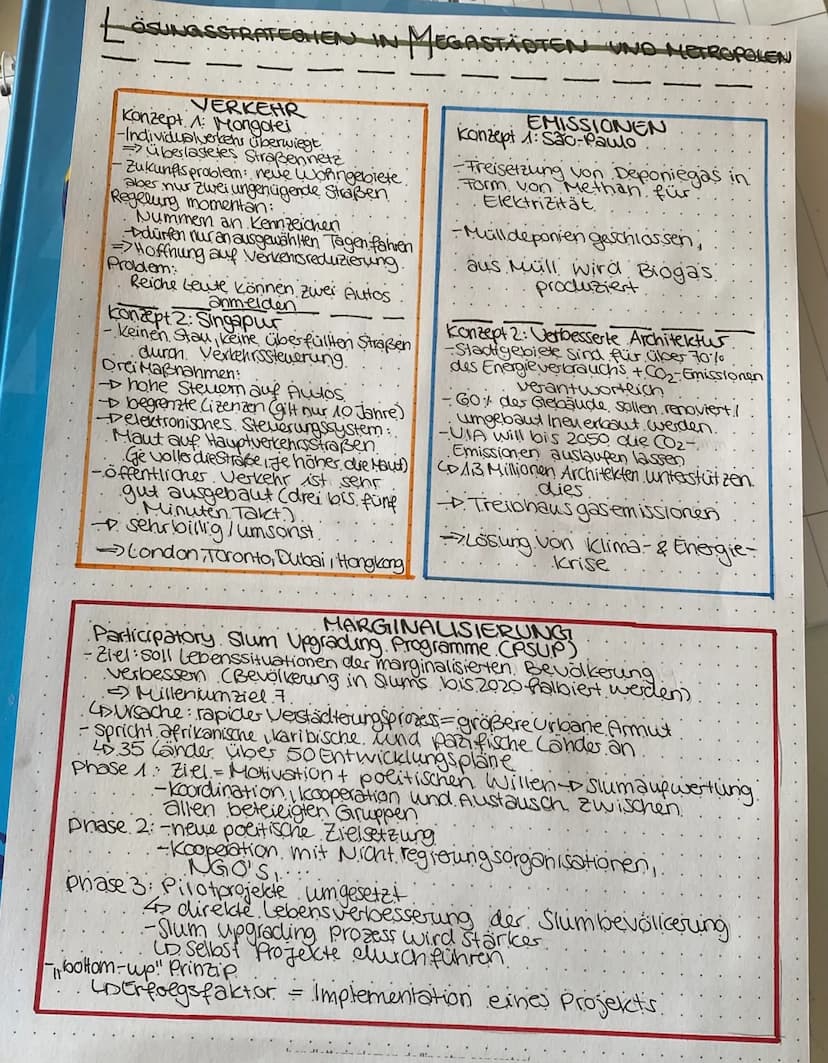 LÖSUNGSSTRATEGIEN IN MEGASTÄDTEN UND METROPOLEN
VERKEHR
Konzept 1: Mongolei
-Individualverkehr überwiegt
=> überlastetes Straßennetz
- Zukunftsproblem: neue Wohngebiete
aber nur zwei ungenügende Straßen
Regelung momentan:
Nummern an Kennzeichen
→dürfen nur an ausgewählten Tagen fahren
=> Hoffnung auf Verkehrsreduzierung
Problem:
Reiche Leute können zwei Autos
anmelden
Konzept 2: Singapur
- keinen Stau, keine überfüllten Straßen
durch Verkehrssteuerung
Drei Maßnahmen:
→ hohe Steuern auf Autos
→ begrenzte Lizenzen (gilt nur 10 Jahre)
→ elektronisches Steuerungssystem:
Maut auf Hauptverkehrsstraßen
(je voller die Straße, je höher die Maut)
- öffentlicher Verkehr ist sehr
gut ausgebaut (drei bis fünf
Minuten Takt)
→ sehr billig / umsonst
=> London, Toronto, Dubai, Hongkong
EMISSIONEN
Konzept 1: São-Paulo
-Freisetzung von Deponiegas in
Form von Methan für
Elektrizität
-Mülldeponien geschlossen,
aus Müll wird Biogas
produziert
Konzept 2: Verbesserte Architektur
-Stadtgebiete sind für über 70%
des Energieverbrauchs + CO2-Emissionen
verantwortlich
- 60% der Gebäude sollen renoviert /
umgebaut / neuerbaut werden
-UIA will bis 2050 die CO2-
Emissionen auslaufen lassen
↳ 1.3 Millionen Architekten unterstützen
dies
→ Treibhausgasemissionen
=> Lösung von Klima- & Energie-
krise
MARGINALISIERUNG
Participatory Slum Upgrading Programme (PSUP)
- Ziel: soll Lebenssituationen der marginalisierten Bevölkerung
verbessern (Bevölkerung in Slums bis 2020 halbiert werden)
=> Milleniumziel 7
↳ Ursache: rapider Verstädterungsprozess = größere urbane Armut
- spricht afrikanische, karibische und pazifische Länder an
↳ 35 Länder über 50 Entwicklungspläne
Phase 1: Ziel = Motivation + politischen Willen → Slumaufwertung
-Koordination, Kooperation und Austausch zwischen
allen beteiligten Gruppen
Phase 2: -neue politische Zielsetzung
-Kooperation mit Nichtregierungsorganisationen,
NGO'S, ...
Phase 3: Pilotprojekte umgesetzt
↳ direkte Lebensverbesserung der Slumbevölkerung
-Slum upgrading prozess wird stärker
↳ selbst Projekte durchführen
-„bottom-up" Prinzip
↳ Erfolgsfaktor = Implementation eines Projekts